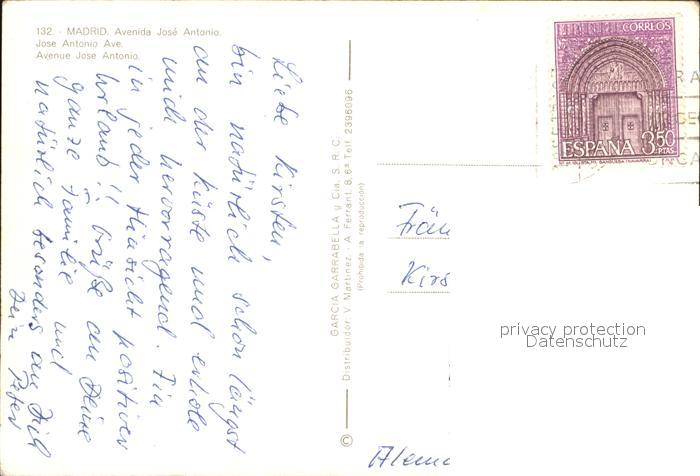 132. - MADRID. Avenida José Antonio.
Jose Antonio Ave.
Avenue Jose Antonio.
Liebe Kirsten,
bin natürlich schon längst
an der Küste und erhole
mich hervorragend. Ein
in jeder Hinsicht positiver
Urlaub!! Grüße an Deine
ganze Familie und
natürlich besonders an Dich
Dein Peter
GARCIA GARRABELLA y Cia. S. R. C.
Distribuidor: V. Martinez. - A. Ferrant, 8, 6.ª Telf. 2396096
(Prohibida la reproducción)
©
CORREOS
ESPAÑA 3,50
PTAS
Fräu
Kirs
privacy protection
Datenschutz
Alema